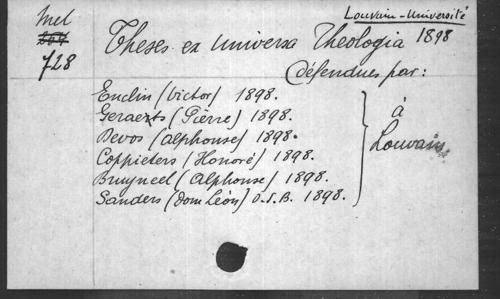 Louvain-Université
Mel
728
Theses ex universa Theologia 1898
défendues par:
Enclin (Victor) 1898.
Geraerts (Pierre) 1898.
Devos (Alphonse) 1898.
Coppieters (Honoré) 1898.
Bruyneel (Alphonse) 1898.
Sanders (Dom Léon) O.S.B. 1898.
à
Louvain.